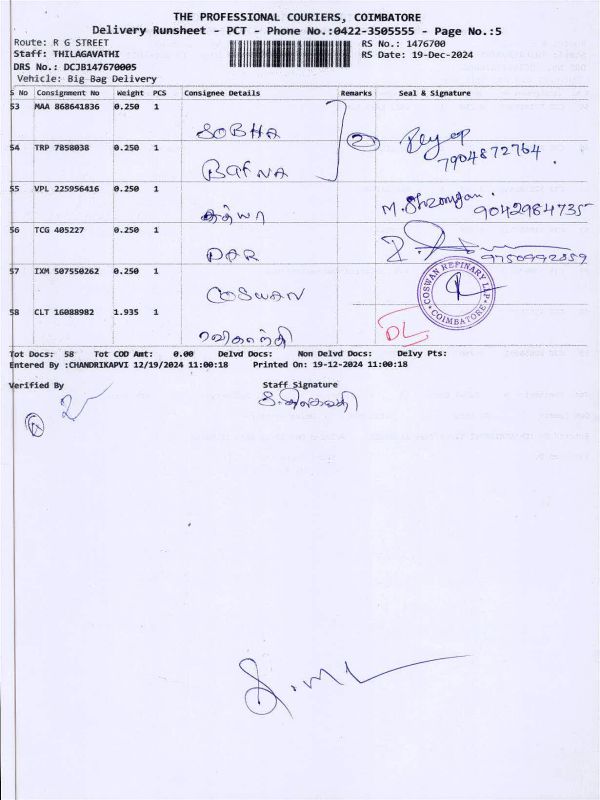 THE PROFESSIONAL COURIERS, COIMBATORE
Delivery Runsheet - PCT - Phone No.:0422-3505555 - Page No.:5
Route: R G STREET RS No.: 1476700
Staff: THILAGAVATHI RS Date: 19-Dec-2024
DRS No.: DCJB147670005
Vehicle: Big Bag Delivery
S No Consignment No Weight PCS Consignee Details Remarks Seal & Signature
53 MAA 868641836 0.250 1
SOBHA 2
7904872764
54 TRP 7858038 0.250 1
BAFNA
55 VPL 225956416 0.250 1
9042984735
56 TCG 405227 0.250 1
DAR
9750992859
57 IXM 507550262 0.250 1
COSWAN
COSWAN REFINARY LLP COIMBATORE
58 CLT 16088982 1.935 1
DL
Tot Docs: 58 Tot COD Amt: 0.00 Delvd Docs: Non Delvd Docs: Delvy Pts:
Entered By :CHANDRIKAPVI 12/19/2024 11:00:18 Printed On: 19-12-2024 11:00:18
Verified By Staff Signature